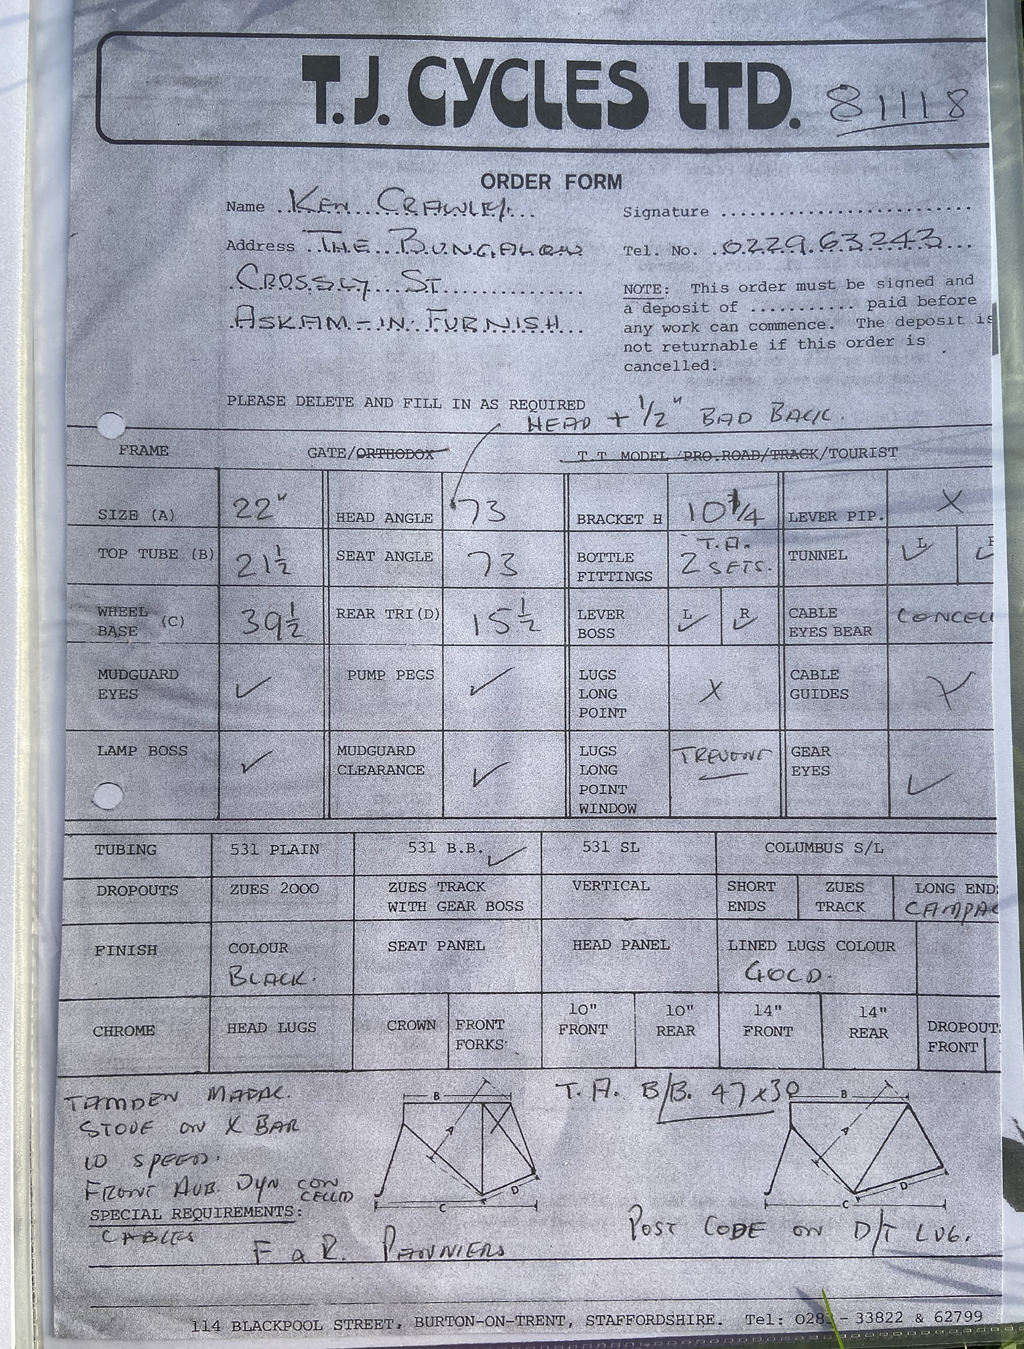 T.J. CYCLES LTD. 81118
ORDER FORM
Name ..KEN...CRAWLEY...
Signature ..........................
Address .THE..BUNGALOW
Tel. No. .0229.63243...
.CROSSLY...ST...............
NOTE: This order must be signed and
a deposit of .......... paid before
.ASKAM-IN.FURNISH...
any work can commence. The deposit is
not returnable if this order is
cancelled.
PLEASE DELETE AND FILL IN AS REQUIRED
HEAD + 1/2" BAD BACK.
FRAME GATE/ORTHODOX T.T MODEL/PRO.ROAD/TRACK/TOURIST
SIZE (A) 22" HEAD ANGLE 73 BRACKET H 10 3/4 LEVER PIP. X
TOP TUBE (B) 21 1/2 SEAT ANGLE 73 BOTTLE FITTINGS T.A. 2 SETS. TUNNEL L ✓ ✓
WHEEL BASE (C) 39 1/2 REAR TRI(D) 15 1/2 LEVER BOSS L ✓ R ✓ CABLE EYES BEAR CONCEL
MUDGUARD EYES ✓ PUMP PEGS ✓ LUGS LONG POINT X CABLE GUIDES
LAMP BOSS ✓ MUDGUARD CLEARANCE ✓ LUGS LONG POINT WINDOW GEAR EYES ✓
TUBING 531 PLAIN 531 B.B. ✓ 531 SL COLUMBUS S/L
DROPOUTS ZUES 2000 ZUES TRACK WITH GEAR BOSS VERTICAL SHORT ENDS ZUES TRACK LONG ENDS CAMPAG
FINISH COLOUR BLACK. SEAT PANEL HEAD PANEL LINED LUGS COLOUR GOLD.
CHROME HEAD LUGS CROWN FRONT FORKS 10" FRONT 10" REAR 14" FRONT 14" REAR DROPOUT FRONT
TAMDEN
STOVE ON X BAR
10 SPEED.
FRONT HUB. DYN CON
CELLD
SPECIAL REQUIREMENTS:
CABLES
F & R. PANNIERS
T.A. B/B. 47x30
B A C D
B A C D
POST CODE ON D/T LUG.
114 BLACKPOOL STREET, BURTON-ON-TRENT, STAFFORDSHIRE. Tel: 0283 - 33822 & 62799